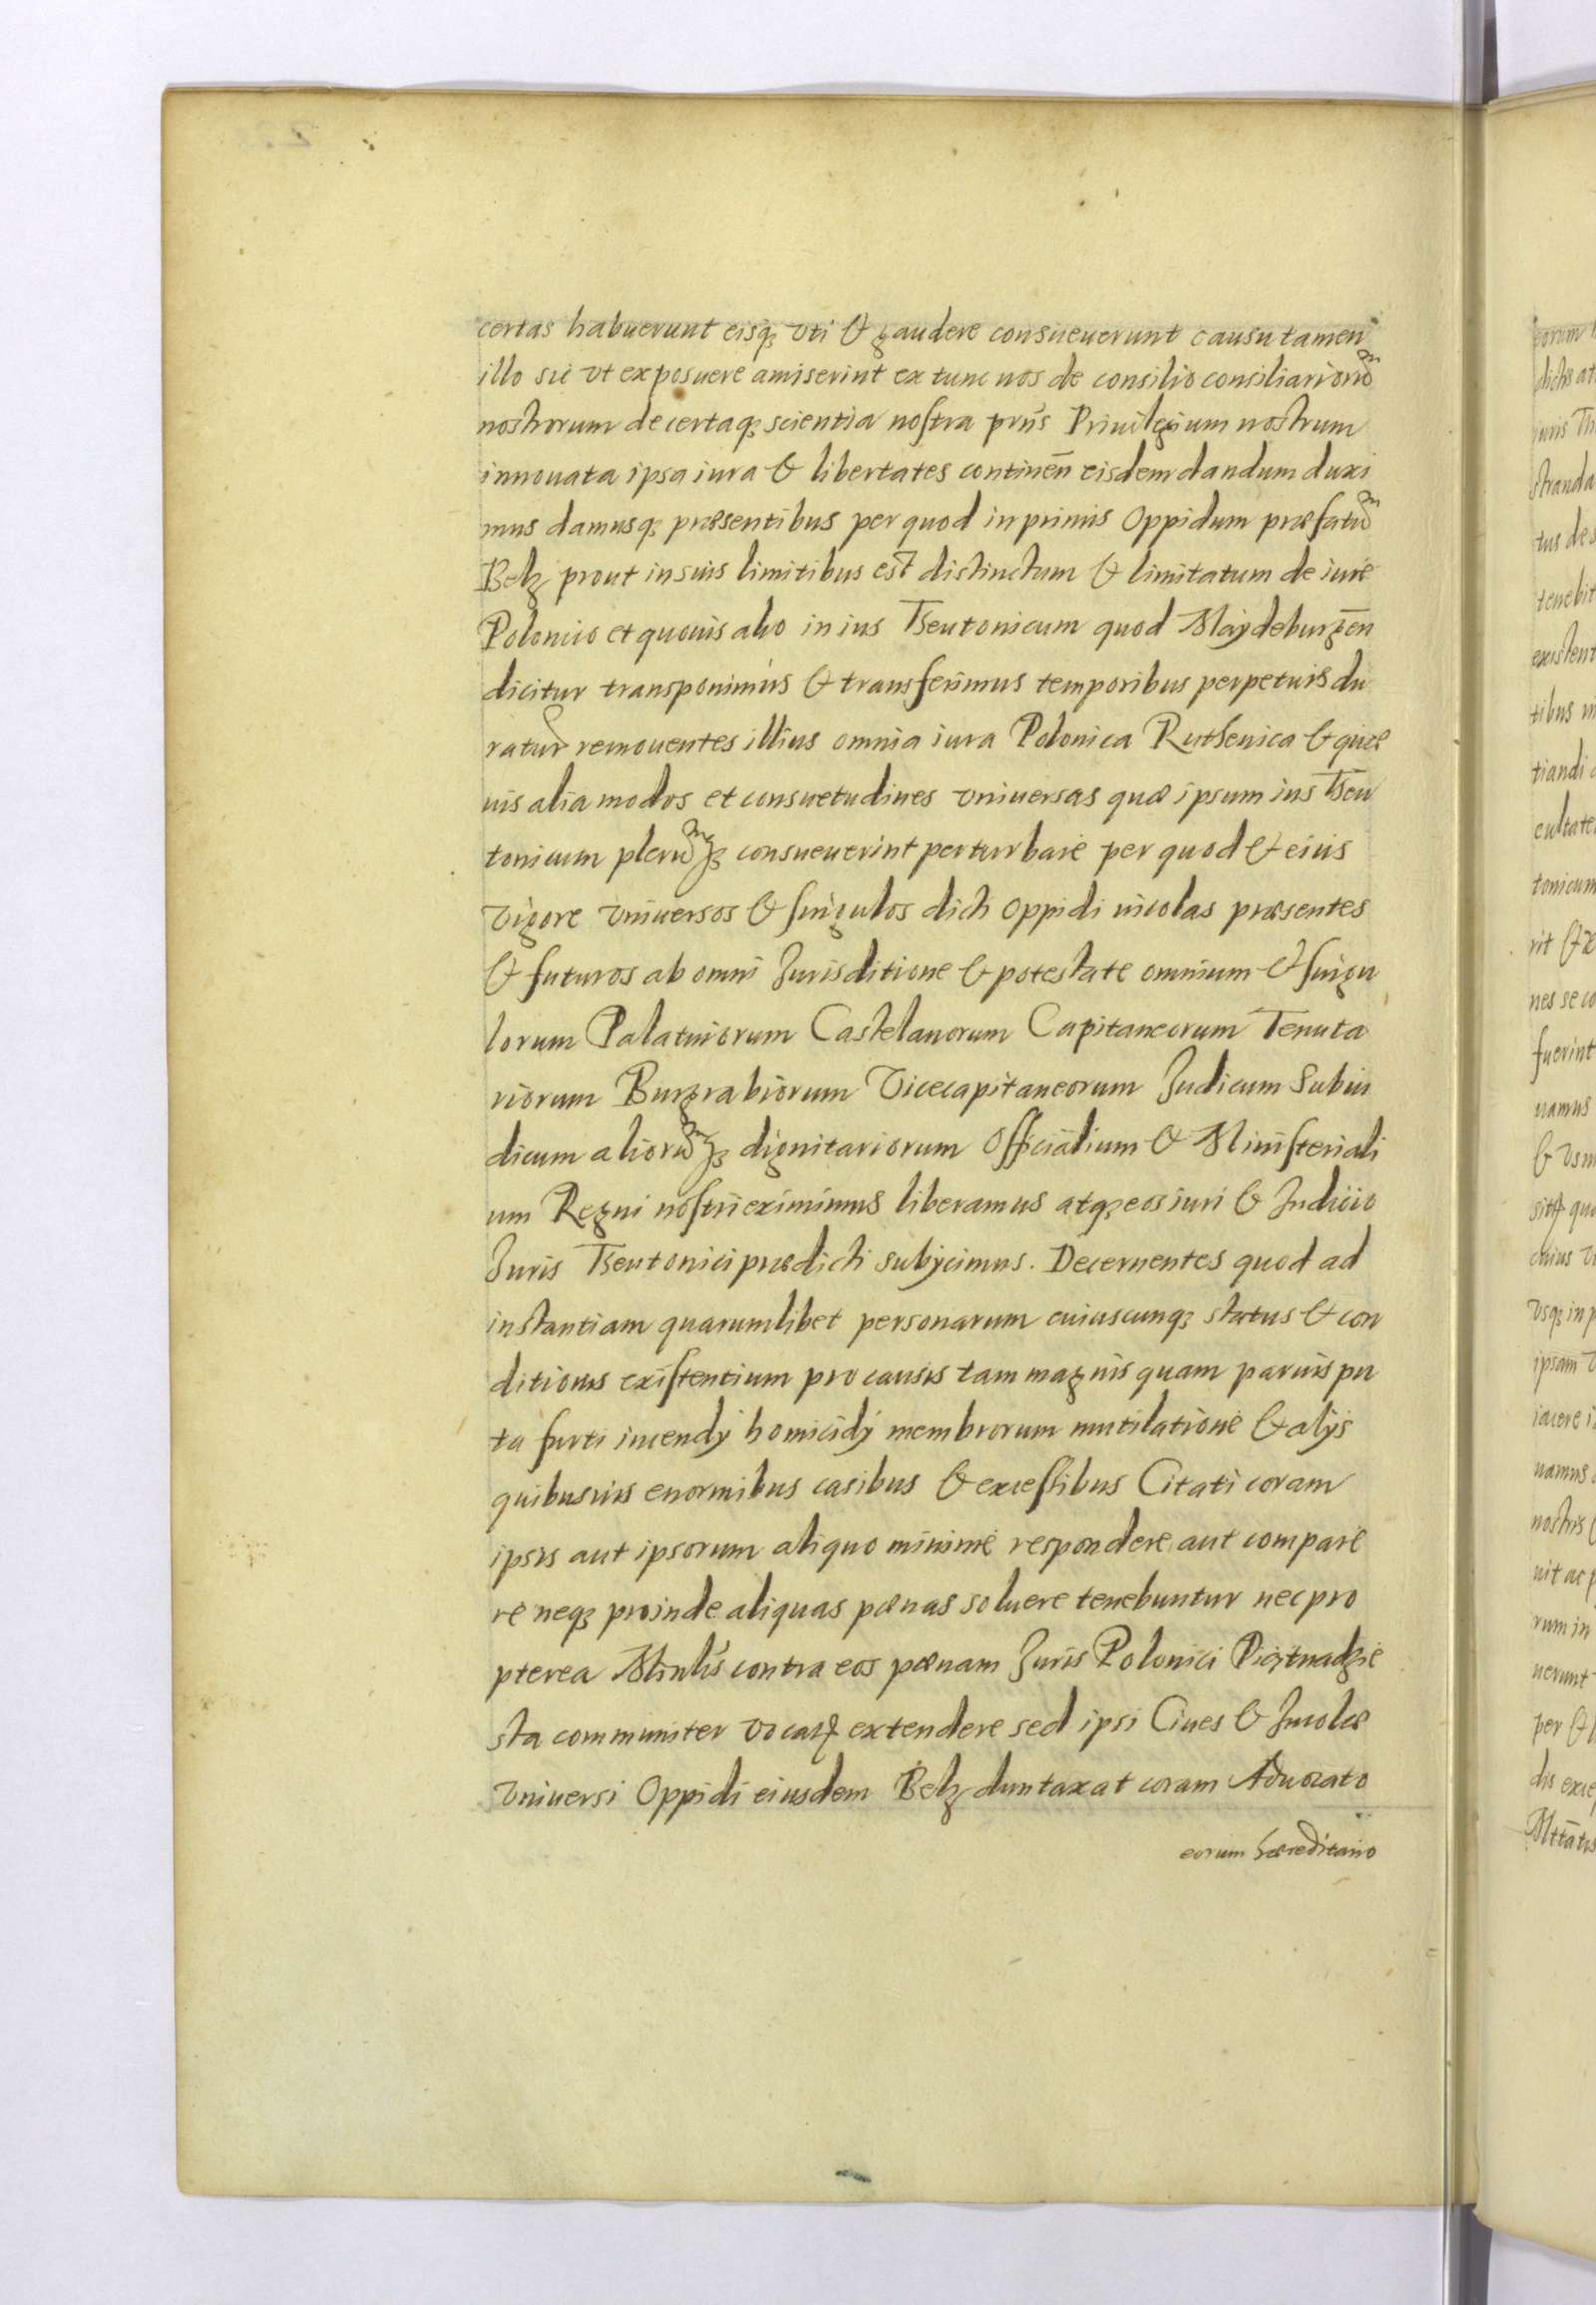 certas habuerunt eisq₃ vti & gaudere consueuerunt causu tamen
illo sic vt exposuere amiserint ex tunc nos de consilio consiliariorũ
nostrorum de certaq₃ scientia nostra prn̄s Priuilegium nostrum
innouata ipsa iura & libertates continen̄ eisdem dandum duxi
mus damusq₃ præsentibus per quod in primis Oppidum præfatũ
Belz prout in suis limitibus est distinctum & limitatum de iure
Polonico et quouis alio in ius Theutonicum quod Maydeburgen̄
dicitur transponimus & transferimus temporibus perpetuis du
raturũ remouentes illius omnia iura Polonica Ruthenica & quæ
uis alia modos et consuetudines vniuersas quæ ipsum ius Theu
tonicum plerũq₃ consueuerint perturbare per quod & eius
vigore vniuersos & singulos dicti oppidi incolas præsentes
& futuros ab omni Jurisditione & potestate omnium & singu
lorum Palatinorum Castelanorum Capitaneorum Tenuta
riorum Burgrabiorum Vicecapitaneorum Judicum Subiu
dicum aliorũq₃ dignitariorum Officialium & Ministeriali
um Regni nostri eximimus liberamus atq₃ eos iuri & Judicio
Juris Theutonici prædicti subijcimus. Decernentes quod ad
instantiam quarumlibet personarum cuiuscunq₃ status & con
ditionis existentium pro causis tam magnis quam paruis pu
ta furti incendij homicidij membrorum mutilatione & alijs
quibusuis enormibus casibus & excessibus Citati coram
ipsis aut ipsorum aliquo minime respondere aut compare
re neq₃ proinde aliquas pœnas soluere tenebuntur nec pro
pterea contra eos pœnam Juris Polonici Piętnadzie
sta communiter extendere sed ipsi Ciues & Incolæ
vniuersi Oppidi eiusdem Belz duntaxat coram Aduocato
eorum hæreditario